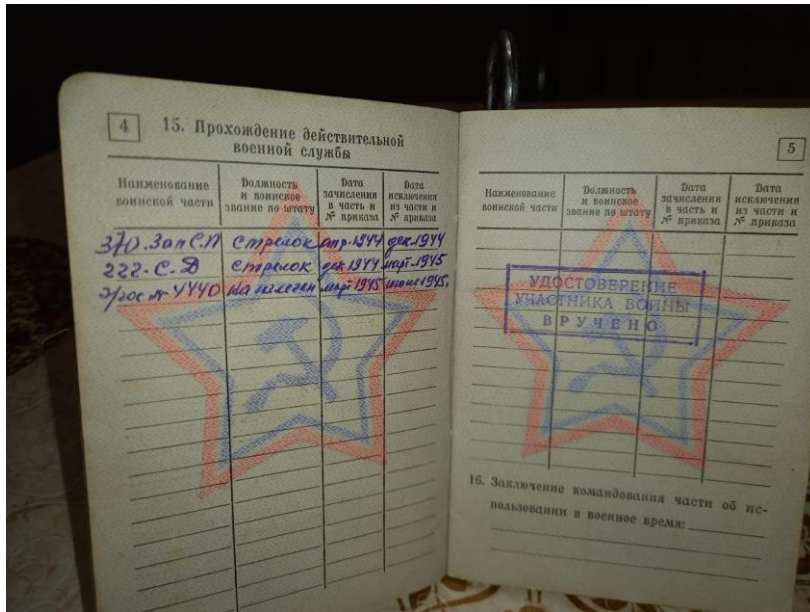 4
15. Прохождение действительной
военной службы
Наименование
воинской части
Должность
и воинское
звание по штату
Дата
зачисления
в часть и
№ приказа
Дата
исключения
из части и
№ приказа
370. Зап С.П стрелок апр. 1944 дек. 1944
222-С.Д стрелок дек 1944 март-1945
Э/гос № 4440 На излечен март 1945 июнь 1945.
5
Наименование
воинской части
Должность
и воинское
звание по штату
Дата
зачисления
в часть и
№ приказа
Дата
исключения
из части и
№ приказа
УДОСТОВЕРЕНИЕ
УЧАСТНИКА ВОЙНЫ
ВРУЧЕНО
16. Заключение командования части об ис-
пользовании в военное время: